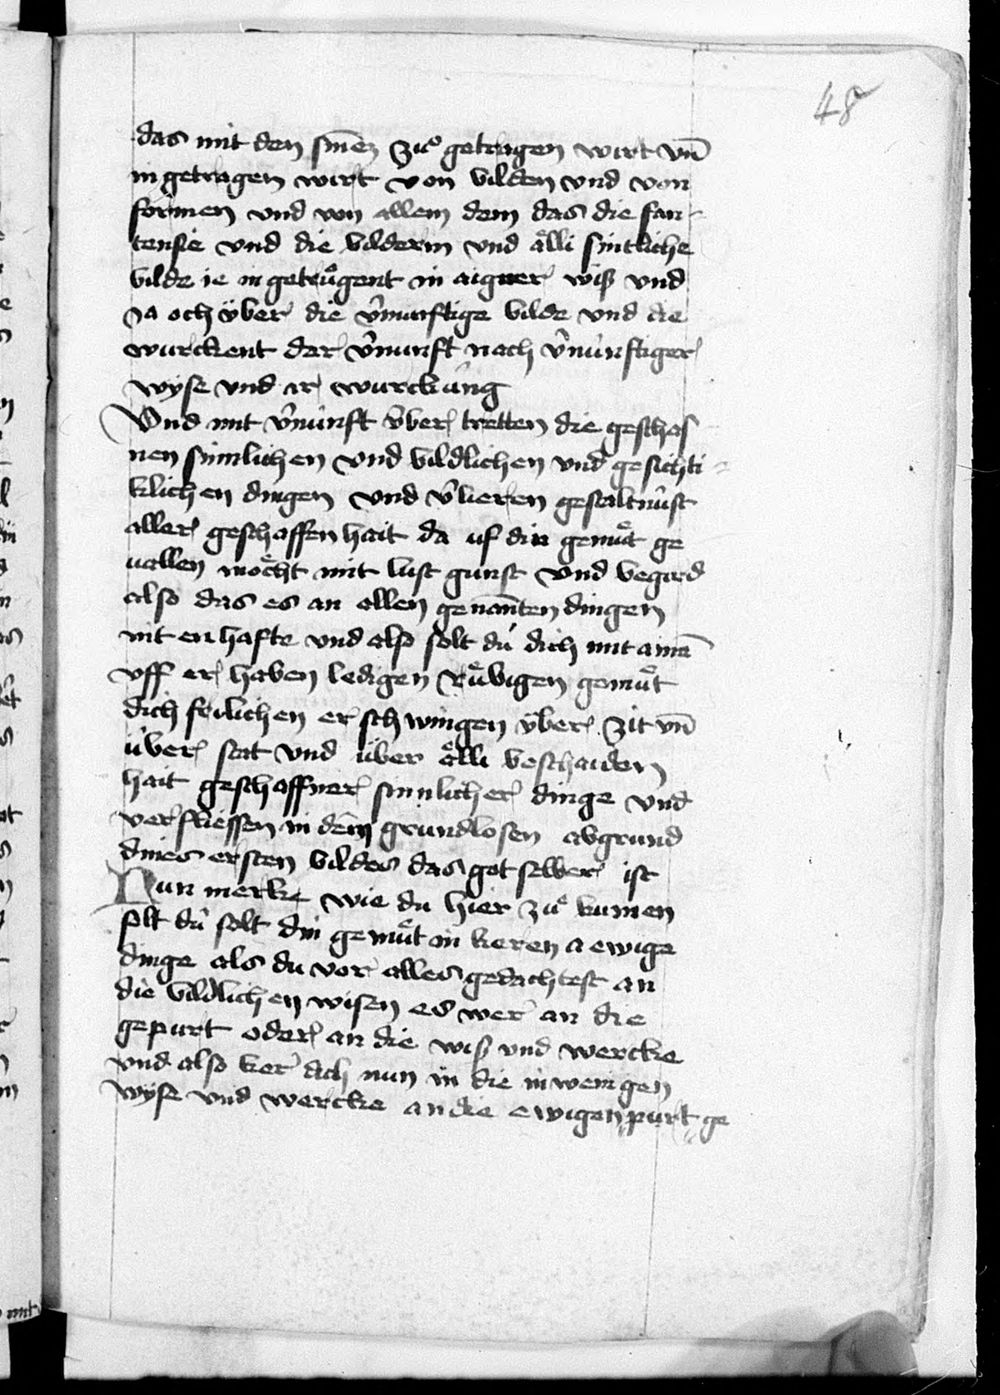 48
das mit den sinēn zuͦ getragen wirt vn̄
in getragen wirt von bilden vnd von
formen vnd von allem dem das die fan-
tensie vnd die bilderin vnd aͤlli sintliche
bilde ie in getruͤgent in aigner wiß vnd
ja och v̈ber die v̂nunftige bilde vnd die
wurckent der v̂nunft nach v̂núnftiger
wyse vnd ir wurckúng
Vnd mit v̂núnft v̂ber tretten die geschaf
nen sinnlichen vnd bildlichen vnd gesichti-
klichen dingen vnd v̂lieren gestaltnúst
aller geschaffenhait da uf din gemuͤt ge
uallen moͤcht mit lust gunst vnd begird
also das es an allen genan̄ten dingen
nit en hafte vnd also solt dú dich mit ainē
vff er haben ledigen ruͤbigen gemuͤt
dich frilichen er schwingen v̈ber zit vn̄
úber stat vnd úber aͤlli beschaiden
hait geschaffner sinnlicher dinge vnd
ver fliessen in dem grundlosen abgrund
dines ersten bildes das got selber ist
Nun merke wie du hier zuͦ kumen
solt dú solt din gemuͤt in keren a ewige
dinge als du vor alles gedachtest an
die bildlichen wisen es wer an die
gepurt oder an die wiß vnd wercke
vnd also ker dich nun in die inwenigen
wyse vnd wercke an die ewigen purt ge